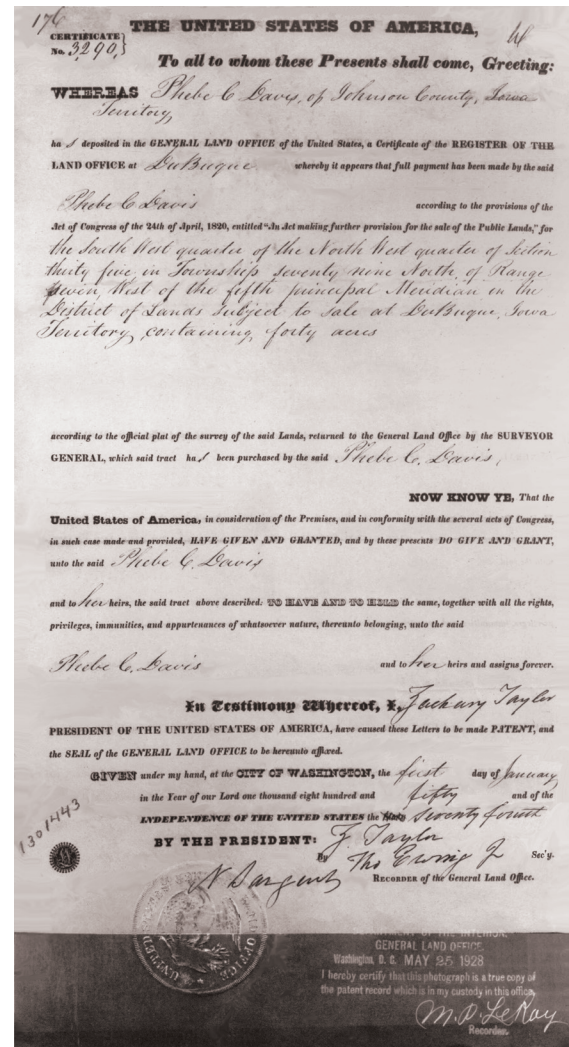 176
THE UNITED STATES OF AMERICA,
CERTIFICATE
No. 3290,
To all to whom these Presents shall come, Greeting:
WHEREAS Phebe C Davis, of Johnson County, Iowa
Territory,
ha s deposited in the GENERAL LAND OFFICE of the United States, a Certificate of the REGISTER OF THE
LAND OFFICE at DuBuque whereby it appears that full payment has been made by the said
Phebe C Davis according to the provisions of the
Act of Congress of the 24th of April, 1820, entitled "An Act making further provision for the sale of the Public Lands," for
the South West quarter of the North West quarter of Section
thirty five in Township seventy nine North, of Range
seven, West of the fifth principal Meridian in the
District of Lands subject to sale at DuBuque, Iowa
Territory, containing, forty acres
according to the official plat of the survey of the said Lands, returned to the General Land Office by the SURVEYOR
GENERAL, which said tract ha s been purchased by the said Phebe C. Davis,
NOW KNOW YE, That the
United States of America, in consideration of the Premises, and in conformity with the several acts of Congress,
in such case made and provided, HAVE GIVEN AND GRANTED, and by these presents DO GIVE AND GRANT,
unto the said Phebe C. Davis
and to her heirs, the said tract above described: TO HAVE AND TO HOLD the same, together with all the rights,
privileges, immunities, and appurtenances of whatsoever nature, thereunto belonging, unto the said
Phebe C. Davis and to her heirs and assigns forever.
In Testimony Whereof, I, Zachary Taylor
PRESIDENT OF THE UNITED STATES OF AMERICA, have caused these Letters to be made PATENT, and
the SEAL of the GENERAL LAND OFFICE to be hereunto affixed.
GIVEN under my hand, at the CITY OF WASHINGTON, the first day of January
in the Year of our Lord one thousand eight hundred and fifty and of the
INDEPENDENCE OF THE UNITED STATES the Seventy fourth
1301443
BY THE PRESIDENT: Z Taylor
By Tho Ewing Jr Sec'y.
N Sargent RECORDER of the General Land Office.
DEPARTMENT OF THE INTERIOR,
GENERAL LAND OFFICE
Washington, D. C. MAY 25 1928
I hereby certify that this photograph is a true copy of
the patent record which is in my custody in this office.
M. P. LeRoy
Recorder.